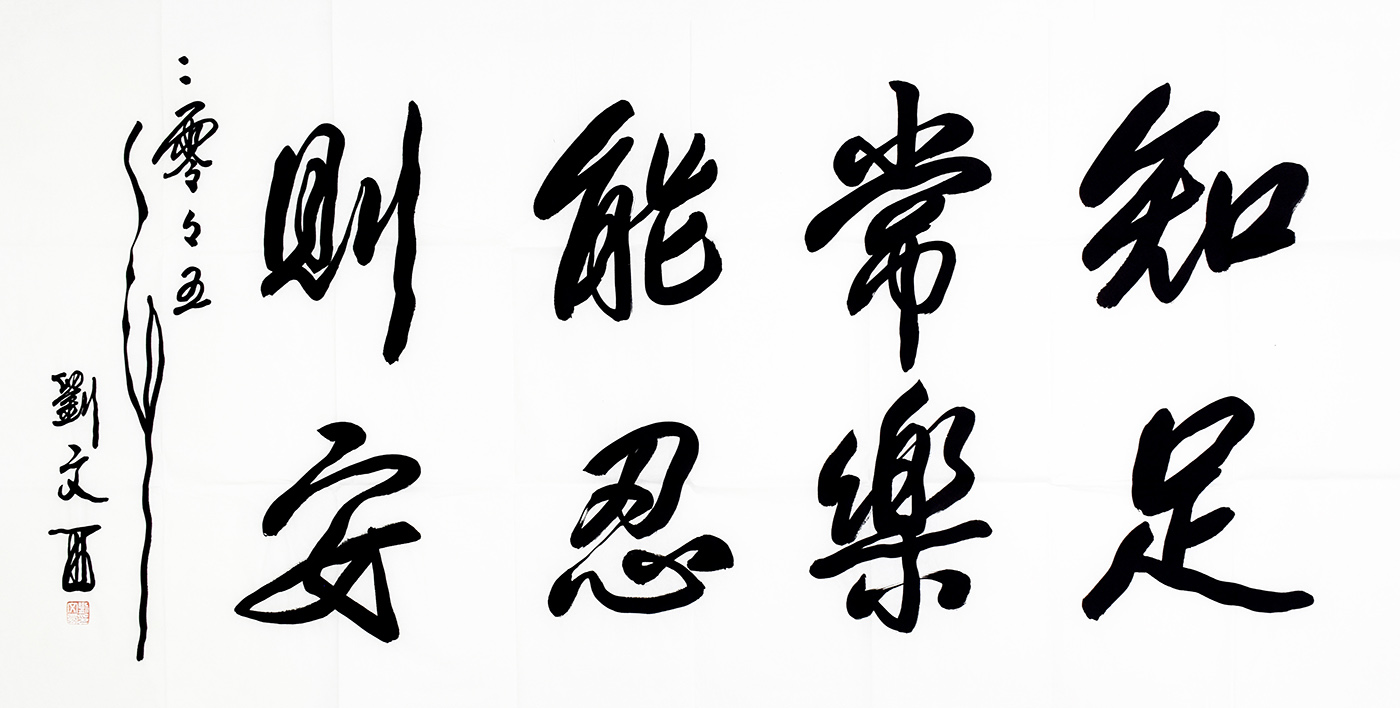 知足
常樂
能忍
則安
二零々五
年
劉文西